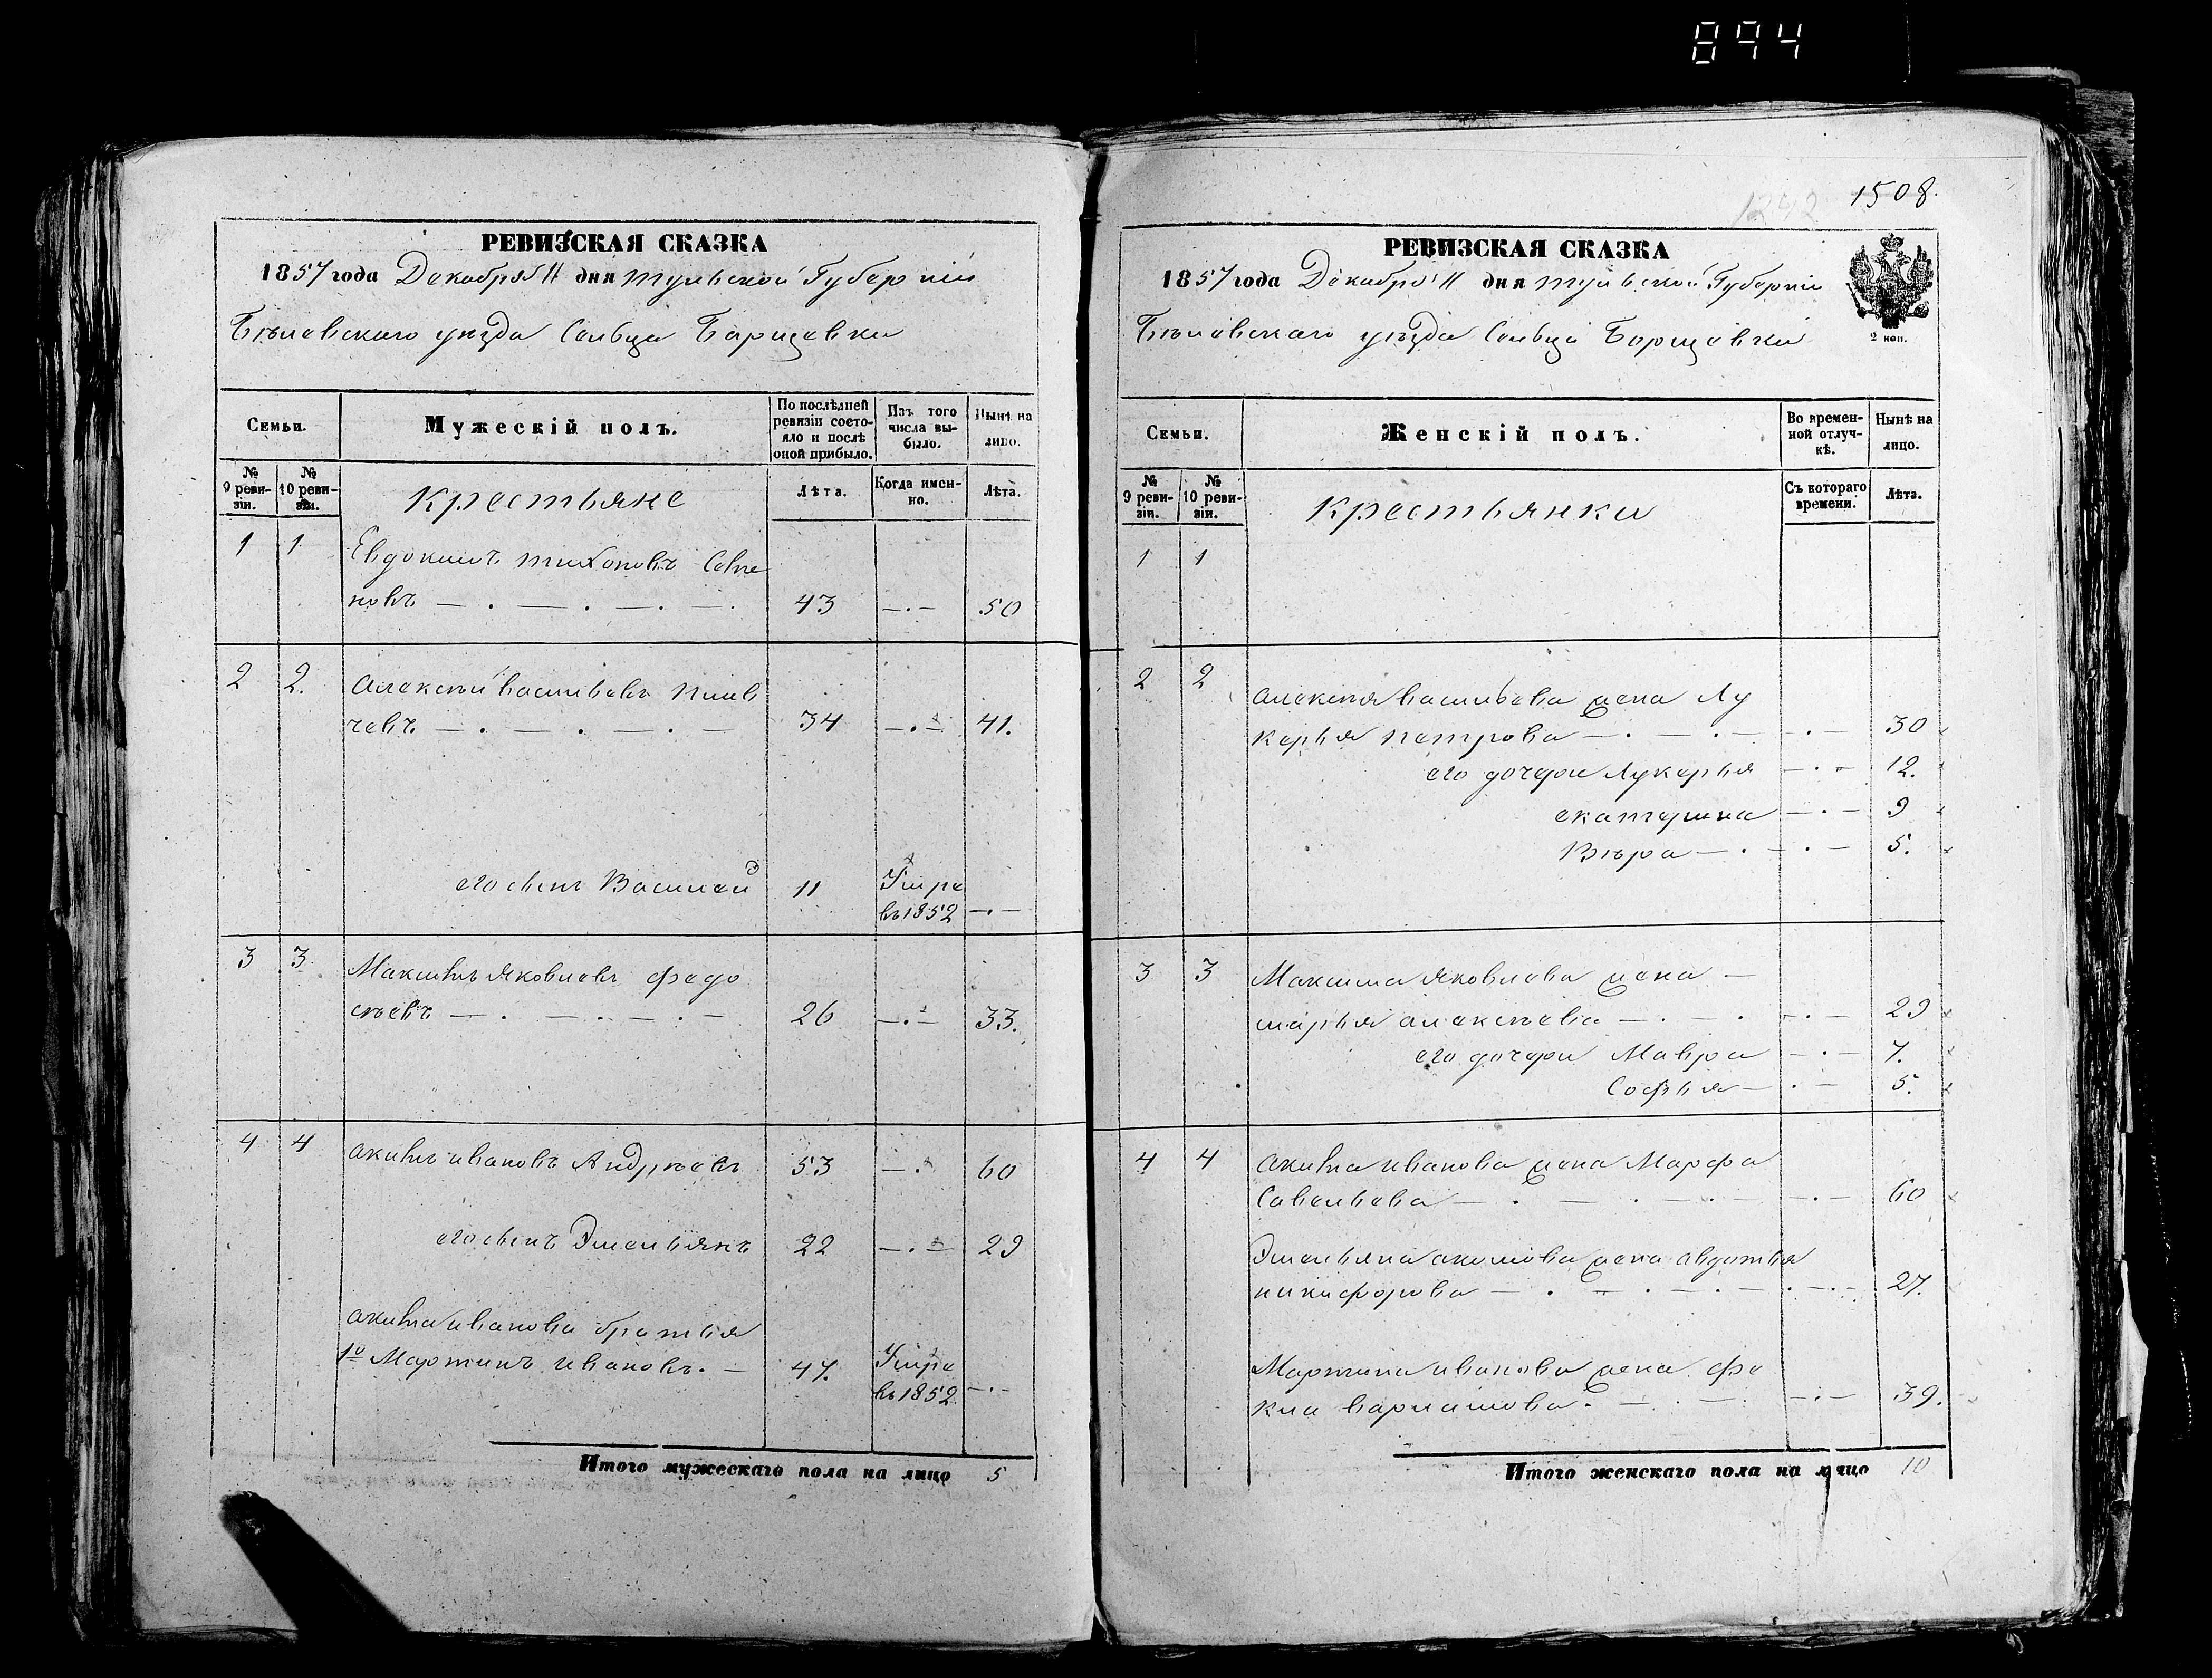 894
1508.
1292
РЕВИЗСКАЯ СКАЗКА
1857 года Декабря 11 дня Тульской Губерніи
Бѣлевскаго уѣзда Сельца Борщевки
Семьи.
Мужескій полъ.
По послѣдней ревизіи состояло и послѣ оной прибыло.
Изъ того числа выбыло.
Нынѣ на лицо.
№ 9 ревизіи.
№ 10 ревизіи.
Крестьяне
Лѣта.
Когда именно.
Лѣта.
1 1 Евдокимъ Тихоновъ
новъ — . — . — . — . 43 — . — 50
2 2. Алексѣй Васильевъ
чевъ — . — . — . — 34 — . — 41.
его сынъ Василей 11 Умре
въ 1852 — . —
3 3. Максимъ Яковлевъ Федо
сѣевъ — . — . — . — 26 — . — 33.
4 4 Акимъ Ивановъ Андрѣевъ 53 — . 60
его сынъ Эмельянъ 22 — . — 29
Акима Иванова братья
1й Мартинъ Ивановъ. — 47. Умре
въ 1852. — . —
Итого мужескаго пола на лицо 5
РЕВИЗСКАЯ СКАЗКА
1857 года Декабря 11 дня Тульской Губерніи
Бѣлевскаго уѣзда Сельца Борщевки
2 коп.
Семьи.
Женскій полъ.
Во временной отлучкѣ.
Нынѣ на лицо.
№ 9 ревизіи.
№ 10 ревизіи.
Крестьянки
Съ котораго времени.
Лѣта.
1 1
2 2 Алексѣя Васильева жена Лу
керья Петрова — . — . — . — 30
его дочери Лукерья — . — 12.
Екатерина — . — 9
Вѣра — . — . — 5.
3 3 Максима Яковлева жена —
Марья Алексѣева — . . — . — 29
его дочери Мавра — . — 7.
Софья — . — 5.
4 4 Акима Иванова жена Марфа
Савельева — . — . — . — . — 60
Эмельяна Акимова жена Авдотья
Никифорова — . — . — . — . — 27.
Мартина Иванова жена Фе
кла Варламова. — . — — . — 39.
Итого женскаго пола на лицо 10